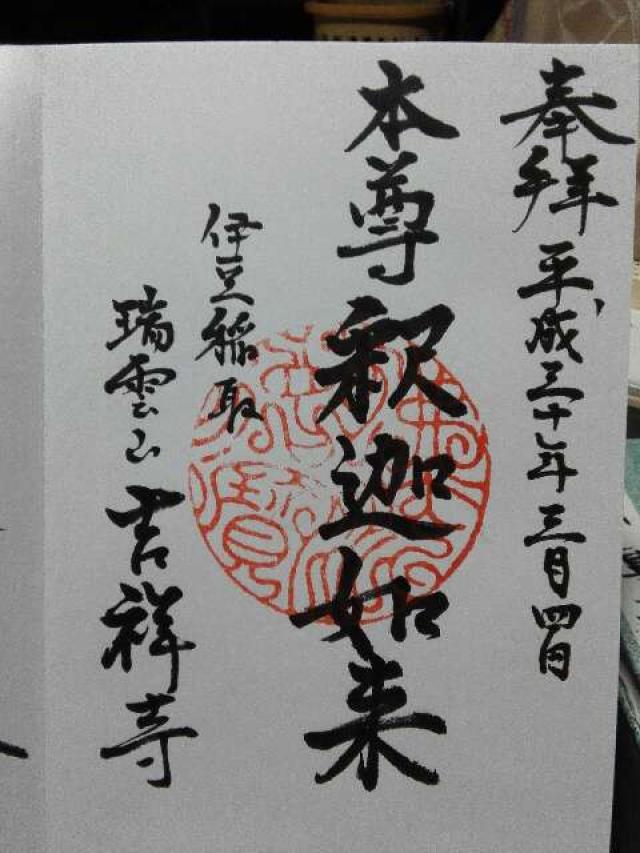 奉拝 平成三十年三月四日
本尊 釈迦如来
伊豆稲取
瑞雲山 吉祥寺